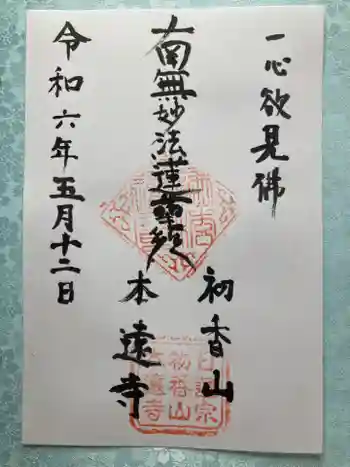 一心欲見佛
南無妙法蓮華経
初香山
本遠寺
令和六年五月十二日
日蓮宗
初香山
本遠寺